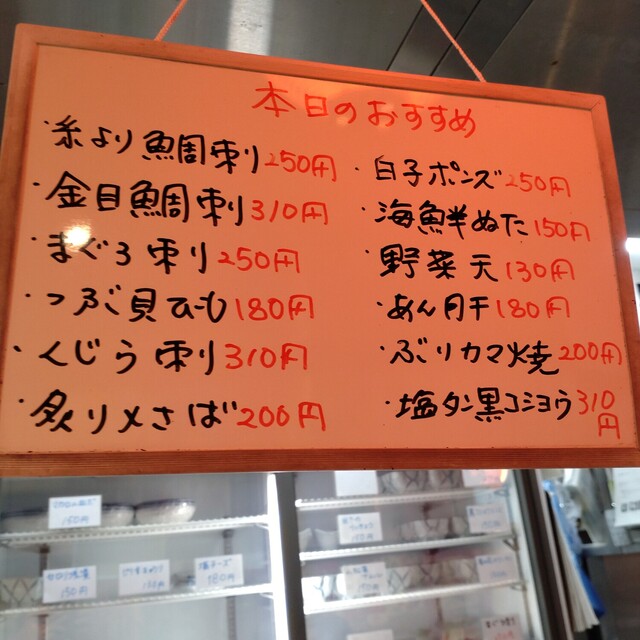 本日のおすすめ
・糸より鯛刺り250円
・金目鯛刺り310円
・まぐろ刺り250円
・つぶ貝ひも180円
・くじら刺り310円
・炙り〆さば200円
・白子ポンズ250円
・海鮮ぬた150円
野菜天130円
・あん肝180円
・ぶりカマ焼200円
・塩タン黒コショウ310円
150円
150円
180円